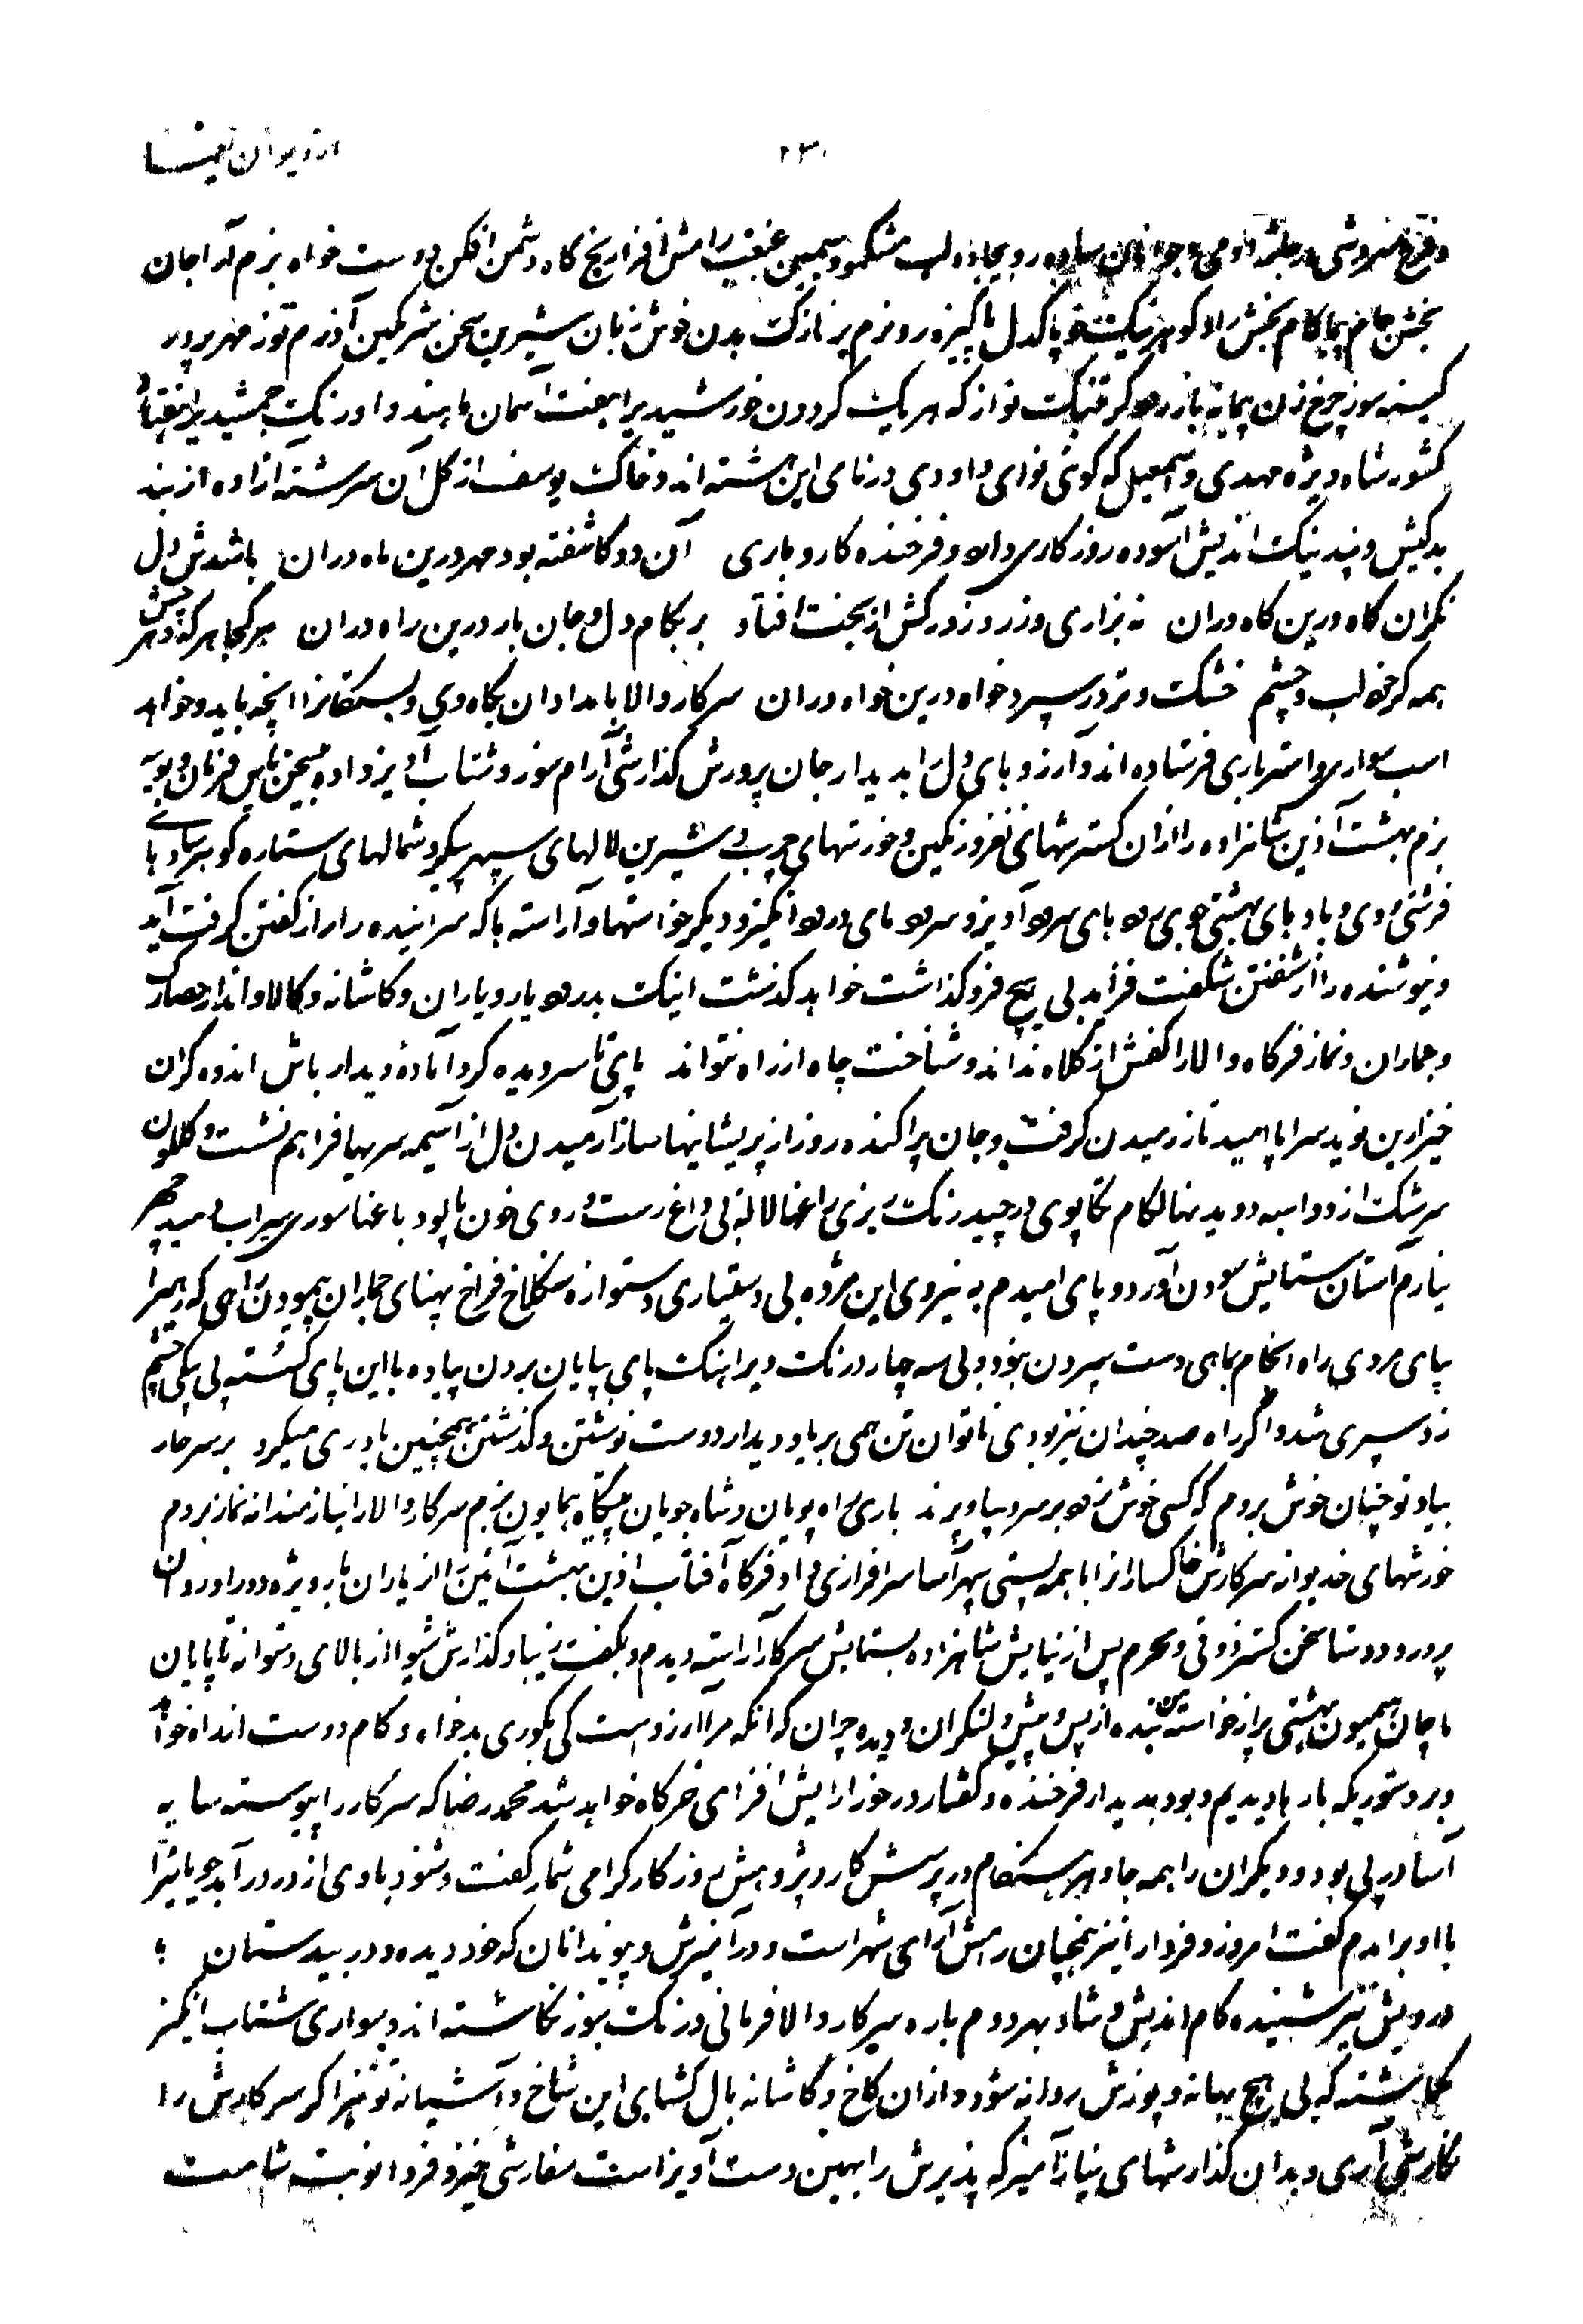 از دیوان یغما
۲۳۰
و فرخ سروشی و جوانان ساده رو بیجاده لب مشکمو و سیمین غبغب رامش افزا رنج کاه دشمن افکن دوست خواه بزم آرا جان
بخش جام پیما کام بخش راد کو پاکدل پاکیزه رو نرم بر نازک بدن خوش زبان شیرین سخن شرمگین آزرم توز مهر پرور
کینه سوز چرخ زن پیمانه نواز که هر یک گردون خورشید یرا هفت آسمان ماهیند و اورنگ جمشید یرا
کشور شاه ویژه مهدی و اسمعیل که گوئی نوای داودی در نای این هشته اند و خاک یوسف از گل آن سرشته آزاده از بند
بدکیش و پند نیک اندیش آسوده روزگاری دارند و فرخنده کار و باری آن دو کاشفته بود مهر درین ماه دران باشدش دل
نگران گاه درین گاه دران نه بزاری و زر و زور کش از بخت افتاد بر بکام دل و جان بار درین راه دران هر کجا هر که
همه گر خو لب و چشم خشک و تر در سپرد خواه درین خواه دران سرکار والا بامدادان بگاه وی و بستگانرا آنچه باید و خواهد
اسب سواری و استر باری فرستاده اند و آرزو بای دل را بدیدار جان پرورش گذارشی آرام سوز و شتاب آویز داده
بزم بهشت آذین شاهزاده را از ان گسترشهای نغز و رنگین و خورشهای چرب و شیرین لالهای سپهر پیکر و شمالهای ستاره کو
فرشتی روی و بادهای بهشتی جوی آویز و انگیز و دیگر خواستها و آراسته ها که سراینده را راز از گفتن گرفت آید
و نیوشنده را از شنفتن شگفت فزاید بی هیچ فروگذاشت خواهد گذشت اینک بدرود یار و یاران و کاشانه و کالا و اندازه
و جماران و نماز فرگاه والا را کفش از کلاه نداند و شناخت چاه از راه نتواند پای تا سر دیده کرد آماده دیدار باش اندوه گران
خیز ازین نوید سراپا امید ناز رمیدن گرفت و جان پراکنده روز از پریشانیها ساز آرمیدن دل از آسیمه سریها فراهم نشست و گلگون
سرشک از دواسبه دوید نهالکام تکاپوی در چید رنگ ریزی راغها لاله بی داغ رست و روی خون پالود باغها سوری سیراب دمید
نیارم آستان ستایش سودن آورد و پای امیدم به نیروی این مژده بی دستیاری دستوازه سنگلاخ فراخ پهنای جماران پیمودن راهی که
بپای مردی راه انجام بماهی دست سپردن نبود و بی سه چار درنگ و یر اهنگ پای بپایان بردن پیاده با این پای گسسته پی بیکی چشم
زد سپری شد و اگر راه صد چندان نیز بودی ناتوان تن همی بر یاد دیدار دوست نوشتن و گذشتن همچنین یاوری میکرد بر سر خار
بیاد تو چنان خوش بروم که کسی خوش بر سر دیبا و پرند باری راه پویان و شاه جویان پیشگاه همایون بزم سرکار والا را نیازمندانه نماز بردم
خورشهای خدیوانه سرکارش خاکسارانرا با همه پستی سپهر آسا سرافرازی داد فرگاه آفتاب آذین بهشت آئین را از یاران بار ویژه دورا و روان
پرور و دو شاخن گستر ذوقی و محرم پس از نیایش شاهزاده بستایش سرکار آراسته دیدم و بگفت زیبا و گذارش شیوا از بالای دستوانه تا پایان
ماچان همیون بهشتی پر از خواسته بنده از پس و پیش دلنگران و دیده چران که انکه مرا آرزوست کی بکوری بدخواه و کام دوست از راه خواهد
و بر دستوریکه بارها دیدیم و بود بدیدار فرخنده و گفتار در خور آرایش افزای خرگاه خواهد شد محمد رضا که سرکار را پیوسته سایه
آسا در پی بود و دیگران را همه جا و هر هنگام در پرسش کار و پژوهش روزگار گرامی شمار گفت و شنود با وی از در درآمد جویا یترا
با او براندم گفت امروز و فردا را نیز همچنان رامش آرای شهر است و در آمیزش و پیوند انان که خود دیده و در بیدستان با
درویش نیز شنیده کام اندیش و شاد بهر دوم باره سرکار والا فرمانی درنگ سوز نگاشته اند و سواری شتاب انگیز
گماشته که بی هیچ بهانه و پوزش روانه شود و از ان کاخ و کاشانه بال گشای این شاخ و آشیانه تو نیز اگر سرکارش را
نگارشی آری و بدان گذارشهای نیاز آمیز که پذیرش را بهین دست آویز است سفارشی خیز و فردا نوبت شاست